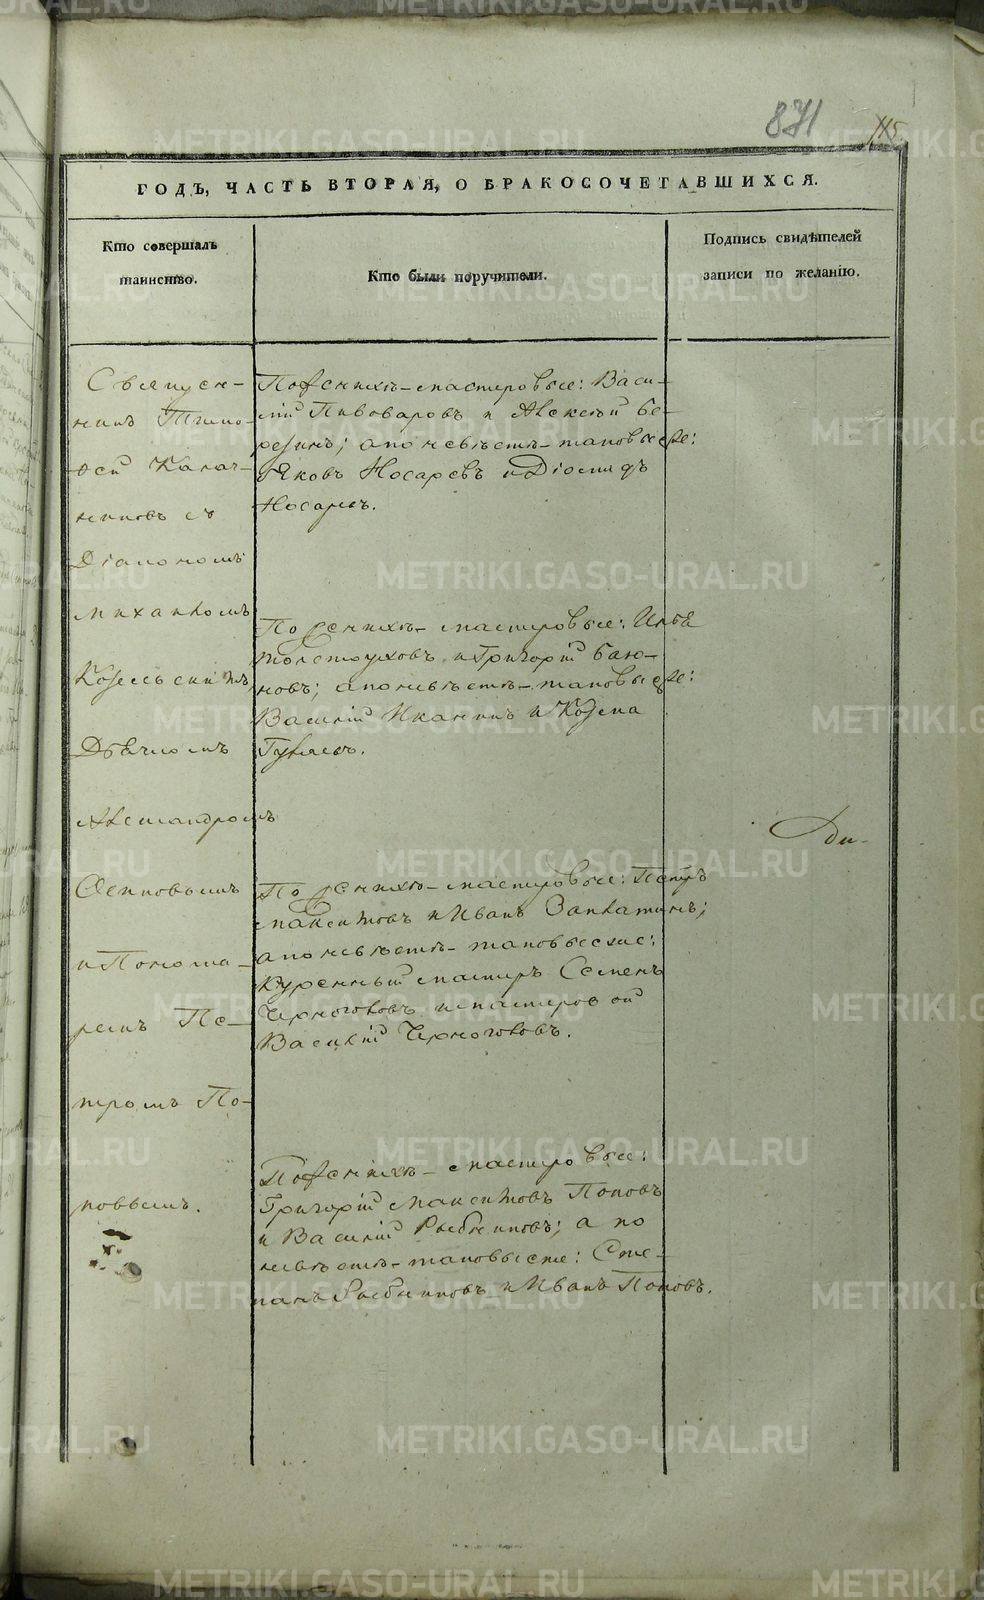 871
115.
ГОДЪ, ЧАСТЬ ВТОРАЯ, О БРАКОСОЧЕТАВШИХСЯ.
Кто совершалъ
таинство.
Кто были поручители.
Подпись свидѣтелей
записи по желанію.
Священ-
никъ Тимо-
ѳей Калач-
никовъ съ
Діакономъ
Михаиломъ
Козельскимъ
Дьячкомъ
Александромъ
Осиповымъ
и Понома-
ремъ Пе-
тромъ По-
повымъ.
По женихѣ - мастеровые: Васи-
лій Пивоваровъ и Алексѣй Бе-
резинъ; а по невѣстѣ - таковые же:
Яковъ Носаревъ и Діомидъ
Носаревъ.
По женихѣ - мастеровые: Илья
Толстоуховъ и Григорій Баю-
новъ; а по невѣстѣ - таковые же:
Василій Иканинъ и Козема
По женихѣ - мастеровые: Петръ
Максимовъ и Иванъ Заплатинъ;
а по невѣстѣ - таковые же:
Куренный мастеръ Семенъ
Черноголовъ и мастеровой
Василій Черноголовъ.
По женихѣ - мастеровые:
Григорій Максимовъ Поповъ
и Василій Рыбниковъ; а по
невѣстѣ - таковые же: Сте-
панъ Рыбниковъ и Иванъ Поповъ.
Ди-
METRIKI.GASO-URAL.RU